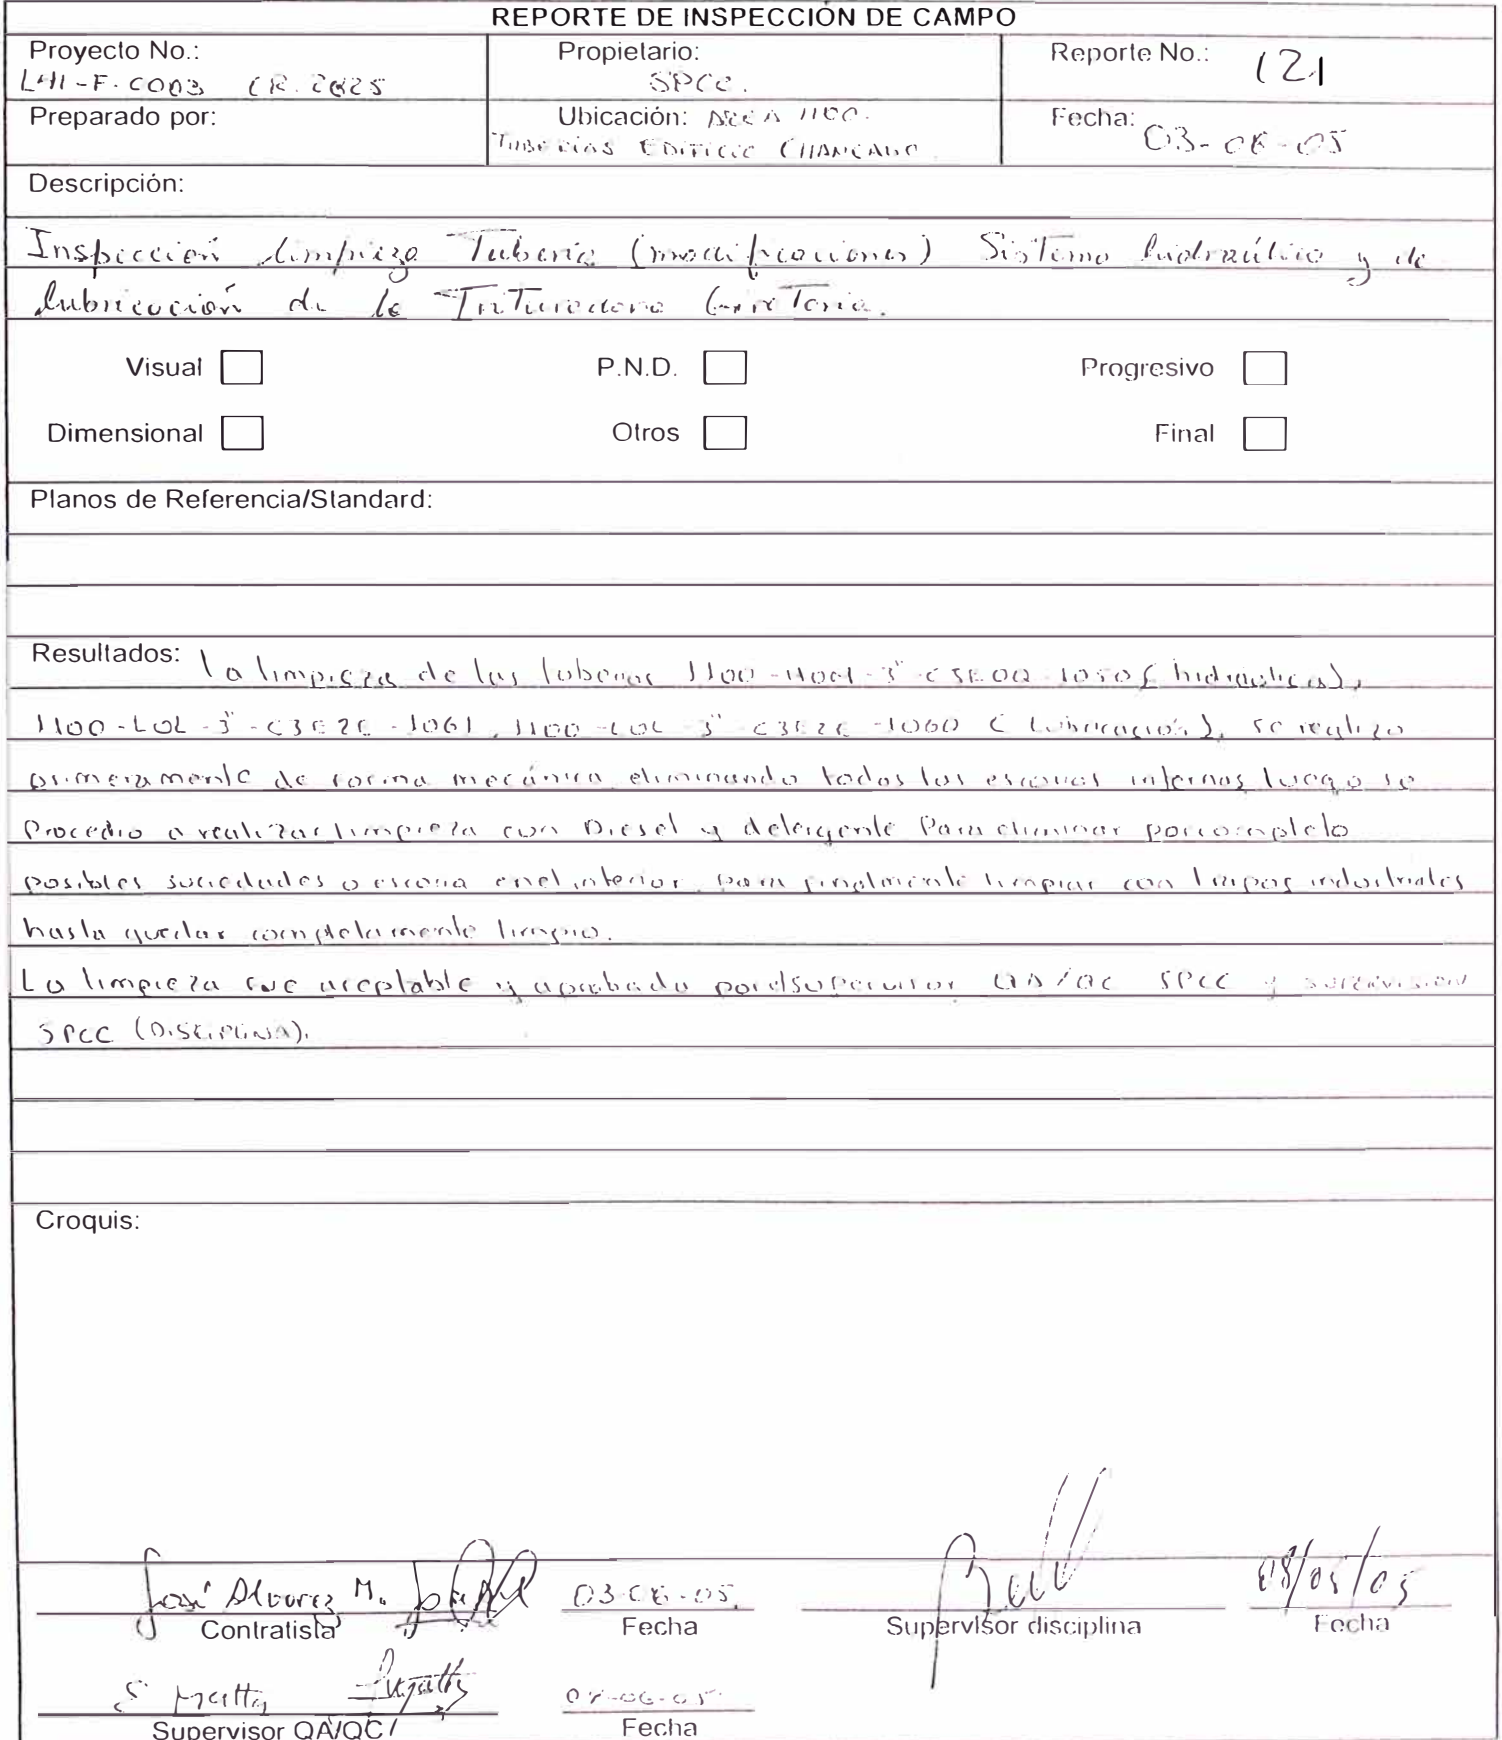 REPORTE DE INSPECCIÓN DE CAMPO
Proyecto No.: Propietario: Reporte No.: 121
L41-F-C003 CR. 2825 SPCC.
Preparado por: Ubicación: AREA 1100. Fecha: 03-06-05
TUBERÍAS EDIFICIO CHANCADO
Descripción:
Inspección limpieza Tubería (modificaciones) Sistema hidraúlico y de
lubricación de la Trituradora Giratoria.
Visual P.N.D. Progresivo
Dimensional Otros Final
Planos de Referencia/Standard:
Resultados: La limpieza de las tuberias 1100-HOM-3"-C3E0Q-1050 (hidraulica),
1100-LOL-3"-C3E2E-1061, 1100-LOL-3"-C3E2E-1060 (Lubricación), se realizo
primeramente de forma mecánica eliminando todos las escorias internas luego se
Procedio a realizar limpieza con Diesel y detergente Para eliminar por completo
posibles suciedades o escoria en el interior, para finalmente limpiar con trapos industriales
hasta quedar completamente limpio.
La limpieza fue aceptable y aprobada por el supervisor QA/QC SPCC y supervision
SPCC (DISCIPLINA).
Croquis:
José Alvarez M. 03-06-05.
Contratista Fecha Supervisor disciplina Fecha
S Matta
Supervisor QA/QC Fecha